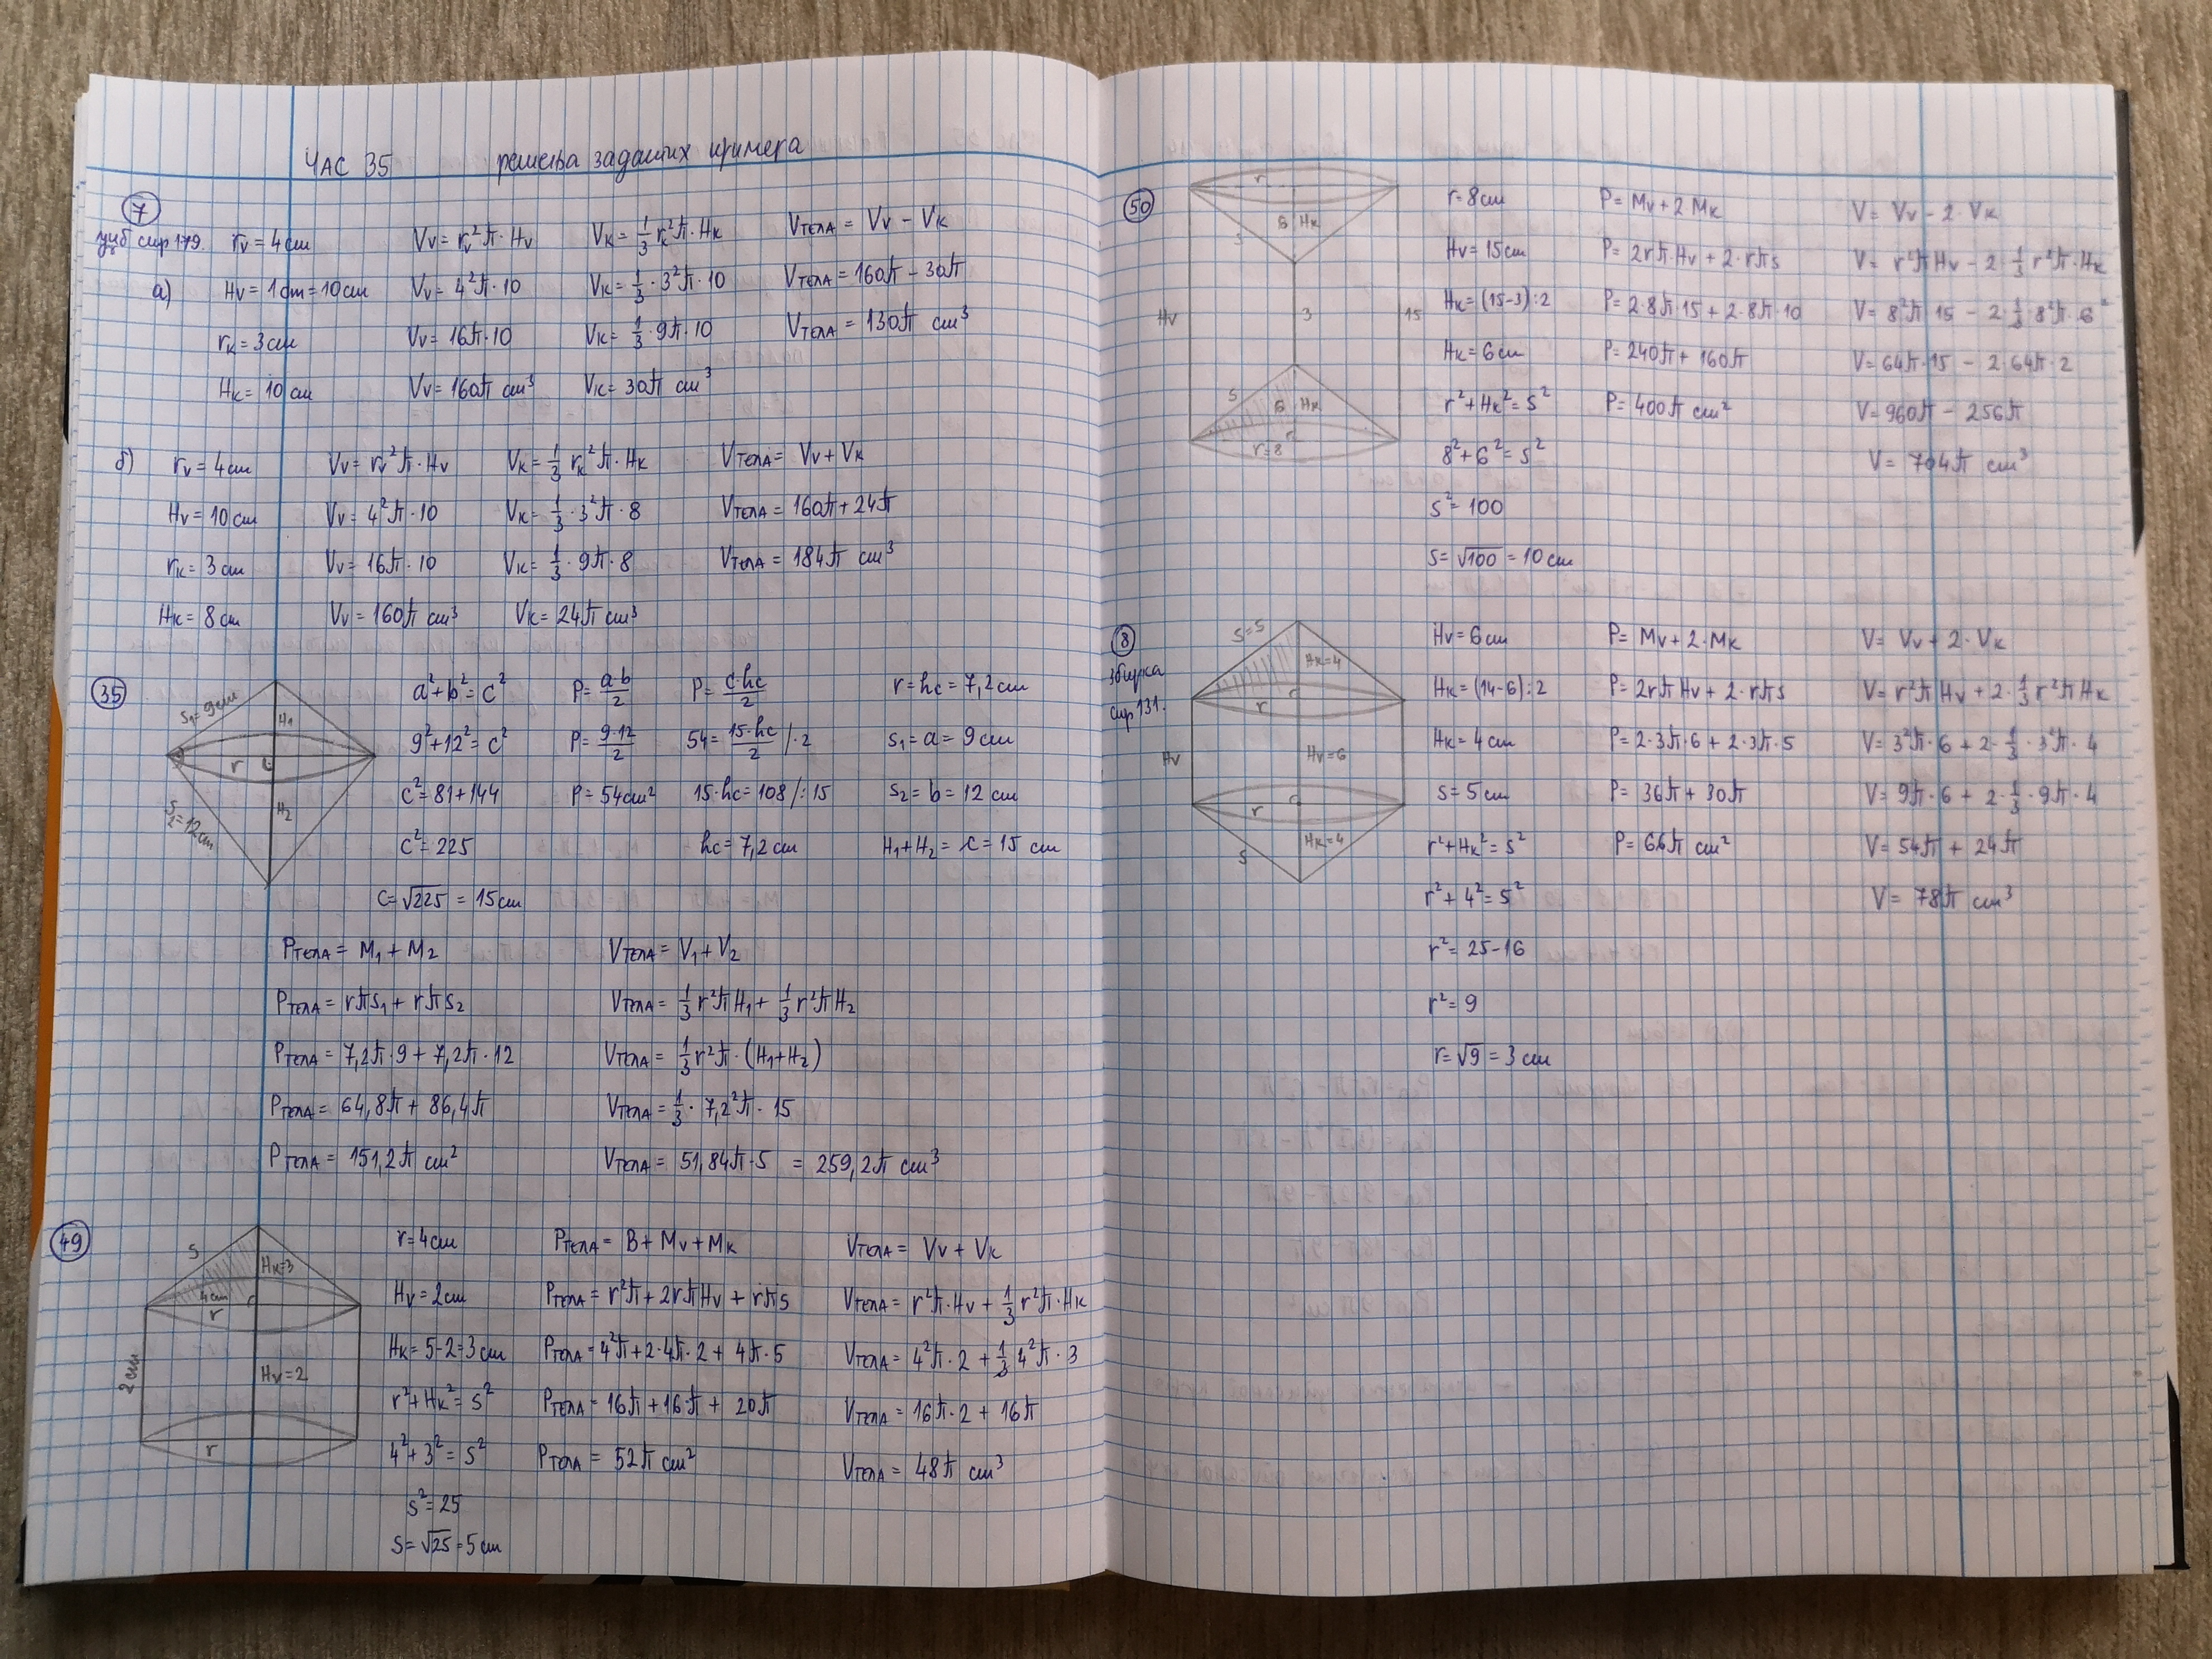 ЧАС 35 решења задатих примера
7
уџб стр 179. rv = 4 cm Vv = rv²π·Hv Vк = 1/3 rк²π·Hк VТЕЛА = Vv − Vк
а) Hv = 1dm = 10cm Vv = 4²π·10 Vк = 1/3·3²π·10 VТЕЛА = 160π − 30π
rк = 3cm Vv = 16π·10 Vк = 1/3·9π·10 VТЕЛА = 130π cm³
Hк = 10 cm Vv = 160π cm³ Vк = 30π cm³
б) rv = 4cm Vv = rv²π·Hv Vк = 1/3 rк²π·Hк VТЕЛА = Vv + Vк
Hv = 10 cm Vv = 4²π·10 Vк = 1/3·3²π·8 VТЕЛА = 160π + 24π
rк = 3 cm Vv = 16π·10 Vк = 1/3·9π·8 VТЕЛА = 184π cm³
Hк = 8 cm Vv = 160π cm³ Vк = 24π cm³
35
s₁ = 9cm
H₁
r
H₂
s₂ = 12cm
a² + b² = c² P = a·b/2 P = c·hc/2 r = hc = 7,2 cm
9² + 12² = c² P = 9·12/2 54 = 15·hc/2 /·2 s₁ = a = 9 cm
c² = 81 + 144 P = 54cm² 15·hc = 108 /:15 s₂ = b = 12 cm
c² = 225 hc = 7,2 cm H₁ + H₂ = c = 15 cm
c = √225 = 15cm
PТЕЛА = M₁ + M₂ VТЕЛА = V₁ + V₂
PТЕЛА = rπs₁ + rπs₂ VТЕЛА = 1/3 r²πH₁ + 1/3 r²πH₂
PТЕЛА = 7,2π·9 + 7,2π·12 VТЕЛА = 1/3 r²π·(H₁+H₂)
PТЕЛА = 64,8π + 86,4π VТЕЛА = 1/3·7,2²π·15
PТЕЛА = 151,2π cm² VТЕЛА = 51,84π·5 = 259,2π cm³
49
s
Hк=3
4cm
r
Hv=2
2cm
r
r = 4cm PТЕЛА = B + Mv + Mк VТЕЛА = Vv + Vк
Hv = 2cm PТЕЛА = r²π + 2rπHv + rπs VТЕЛА = r²π·Hv + 1/3 r²π·Hк
Hк = 5-2=3 cm PТЕЛА = 4²π + 2·4π·2 + 4π·5 VТЕЛА = 4²π·2 + 1/3 4²π·3
r² + Hк² = s² PТЕЛА = 16π + 16π + 20π VТЕЛА = 16π·2 + 16π
4² + 3² = s² PТЕЛА = 52π cm² VТЕЛА = 48π cm³
s² = 25
s = √25 = 5cm
50
r
6 Hк
s
Hv
3
15
s
6 Hк
r=8
r = 8cm P = Mv + 2Mк V = Vv − 2·Vк
Hv = 15cm P = 2rπ·Hv + 2·rπs V = r²πHv − 2·1/3 r²π·Hк
Hк = (15-3):2 P = 2·8π·15 + 2·8π·10 V = 8²π·15 − 2·1/3·8²π·6
Hк = 6cm P = 240π + 160π V = 64π·15 − 2·64π·2
r² + Hк² = s² P = 400π cm² V = 960π − 256π
8² + 6² = s² V = 704π cm³
s² = 100
s = √100 = 10 cm
8
збирка
стр 131.
s=5
Hк=4
r
Hv
Hv=6
r
Hк=4
s
Hv = 6cm P = Mv + 2·Mк V = Vv + 2·Vк
Hк = (14-6):2 P = 2rπHv + 2·rπs V = r²πHv + 2·1/3 r²πHк
Hк = 4 cm P = 2·3π·6 + 2·3π·5 V = 3²π·6 + 2·1/3·3²π·4
s = 5cm P = 36π + 30π V = 9π·6 + 2·1/3·9π·4
r² + Hк² = s² P = 66π cm² V = 54π + 24π
r² + 4² = 5² V = 78π cm³
r² = 25-16
r² = 9
r = √9 = 3 cm